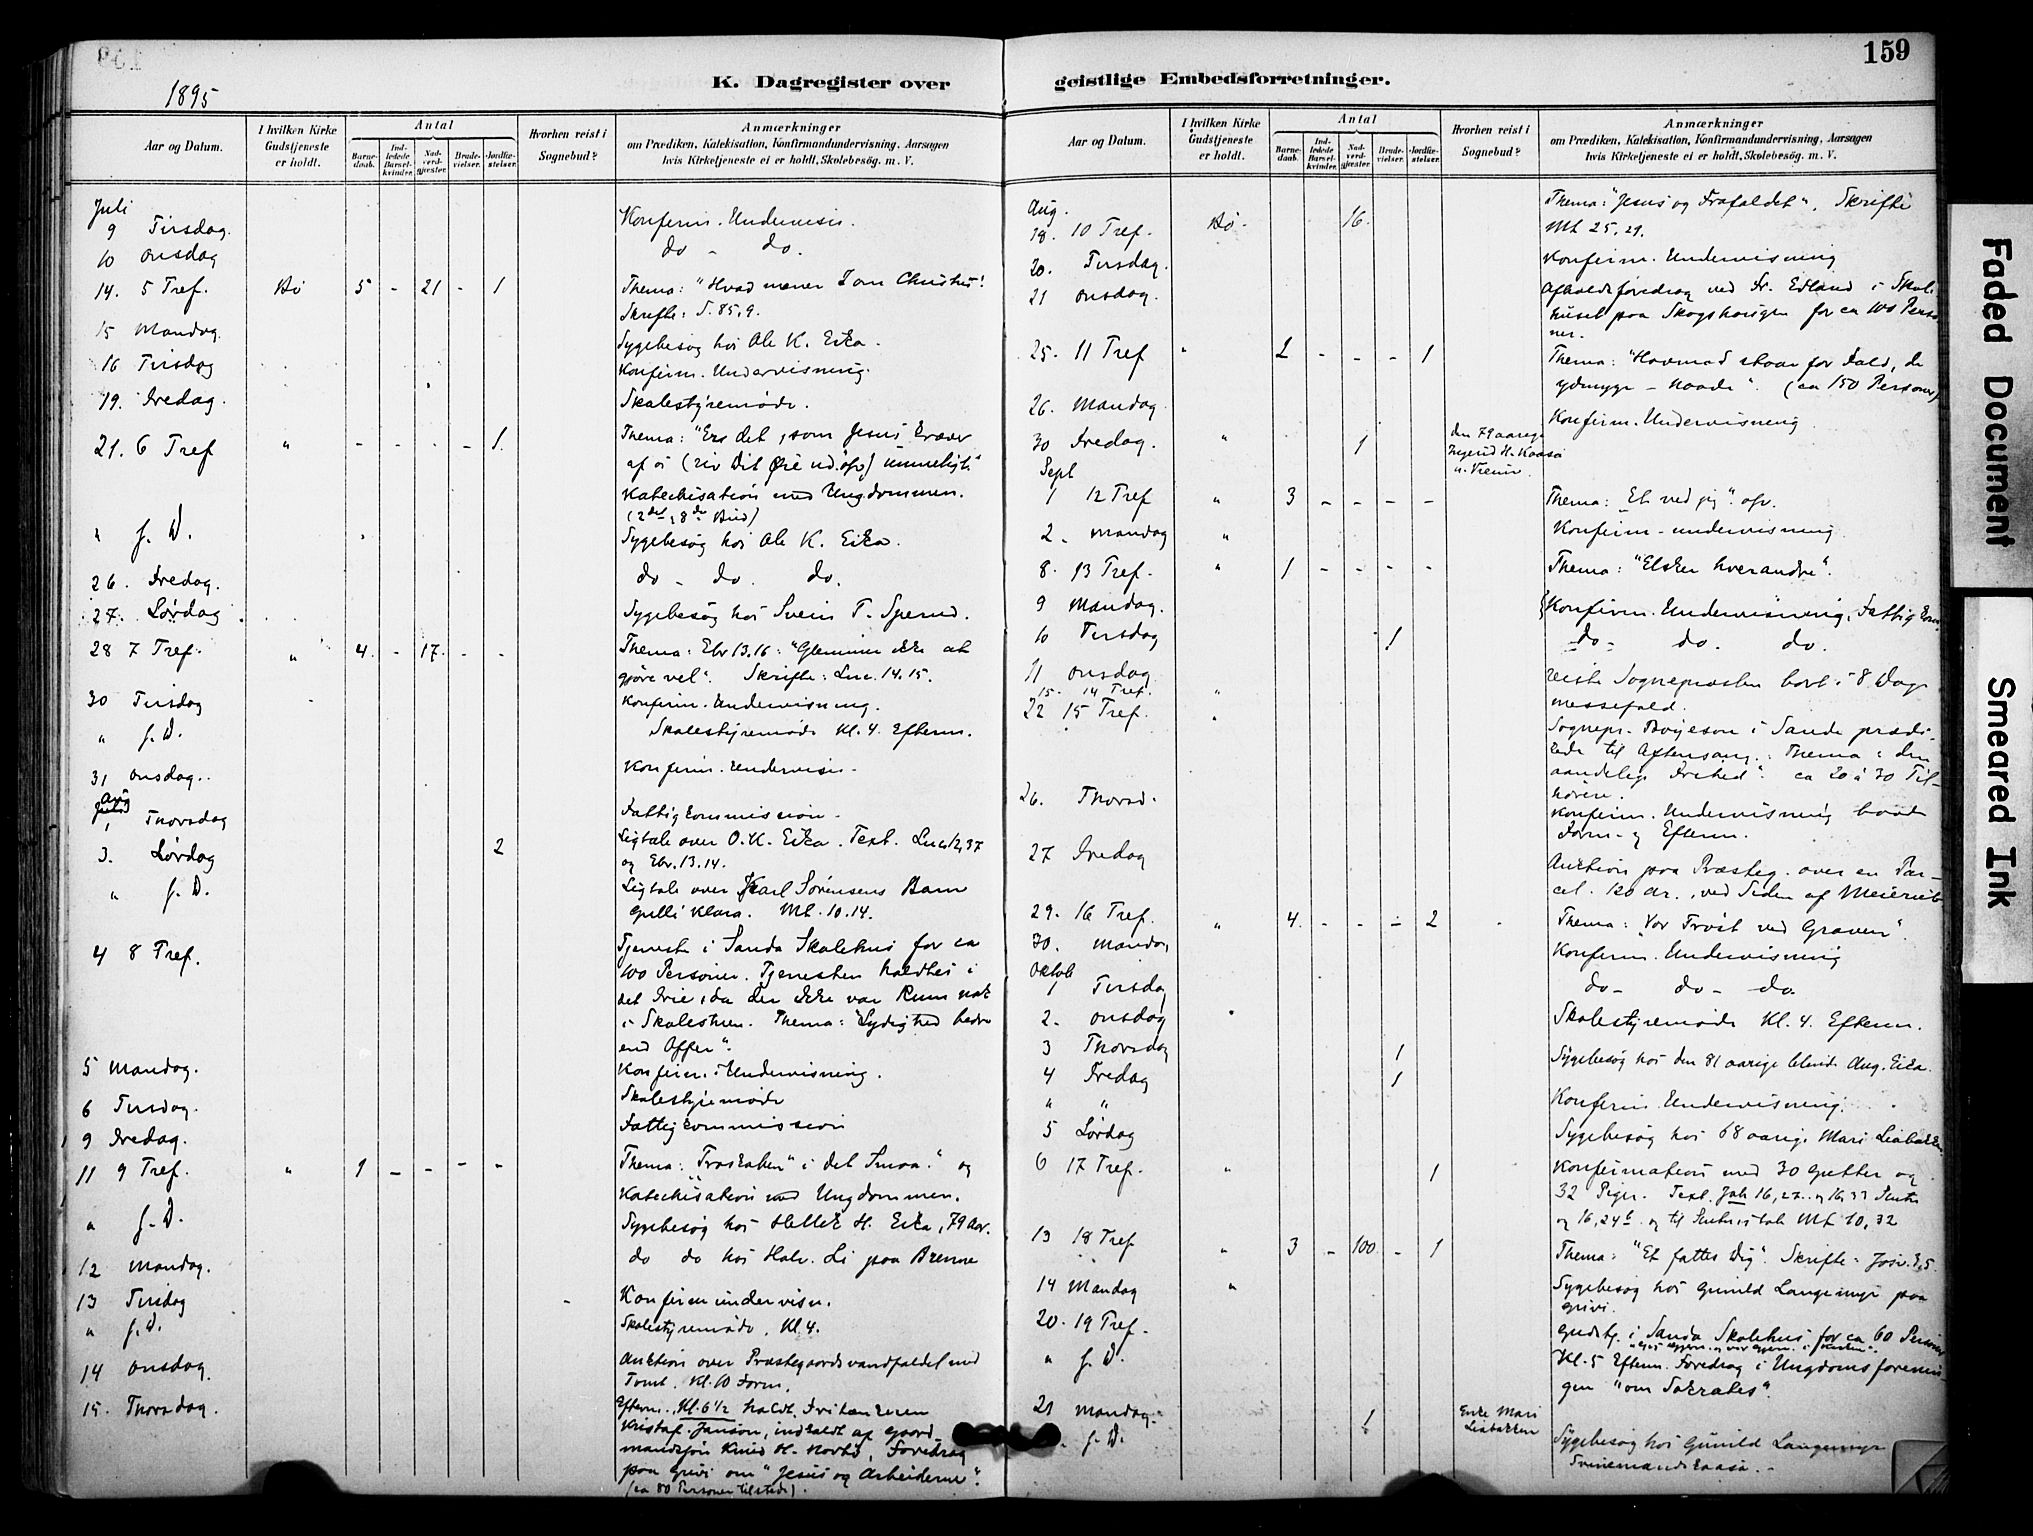 159
1895
K. Dagregister over
Aar og Datum.
I hvilken Kirke Gudstjeneste er holdt.
Antal
Barne-daab.
Ind-ledede Barsel-kvinder.
Nad-verd-gjæster.
Brude-vielser.
Jordfæ-stelser.
Hvorhen reist i Sognebud?
Anmærkninger
om Prædiken, Katekisation, Konfirmandundervisning, Aarsagen
hvis Kirketjeneste ei er holdt, Skolebesög. m. V.
Juli
9 Tirsdag. Konfirm. Undervisn.
10 Onsdag do - do.
14. 5 Tref. Bø 5 - 21 - 1 Thema: "Hvad mener I om Christus!
Skrifte: S. 85, 9.
15 Mandag. Sygebesøg hos Ole K. Eika.
16 Tirsdag Konfirm. Undervisning.
19. Fredag. Skolestyremøde.
21. 6 Tref " - - - - 1. Thema: "Er det, som Jesus kræver
af os (riv Dit Øie ud. ofv) umueligt."
Katechisation med Ungdommen.
" s. D. Sygebesøg hos Ole K. Eika.
26. Fredag. do - do. do.
27. Lørdag Sygebesøg hos Svein T.
28 7 Tref. " 4. - 17. - - Thema: Ebr 13.16: "Glemmer ikke at
gjøre vel". Skrifte: Luc. 14.15.
30 Tirsdag Konfirm. Undervisning.
" s. D. Skolestyremøde Kl. 4. Efterm.
31 Onsdag. Konfirm. Undervisn.
Aug
1 Thorsdag Fattigkommission.
3. Lørdag 2 Ligtale over O. K. Eika. Text. Luc. 12, 37
og Ebr. 13.14.
" s. D. Ligtale over Karl Sørensens Barn
Gulli Klara. Mt. 10.14.
4 8 Tref. Tjeneste i Sanda Skolehus for ca
100 Personer. Tjenesten holdtes i
det Frie, da der ikke var Rum nok
i Skolestuen. Thema: "Lydighed bedre
end Offer".
5 Mandag. Konfirm. Undervisning.
6 Tirsdag. Skolestyremøde
9 Fredag. Fattigkommission
11 9 Tref. " 1 - - - - Thema: "Troskaben" i det Smaa." og
Katechisation med Ungdommen.
" s. D. Sygebesøg hos Hellek H. Eika, 79 Aar.
12 Mandag. do do hos Halv. Li paa
13 Tirsdag Konfirm undervisn.
" s. D. Skolestyremøde. Kl. 4.
14 Onsdag Auktion over Præstegaardsvandfaldet med
Tomt. Kl. 10 Form.
15. Thorsdag. Efterm. Kl. 6 1/2 holdt Fritænkeren
Kristof. Janson, indkaldt af Gaard-
mandsjøn Knud H. Norbø, Foredrag
paa Grivi om "Jesus og Arbeiderne".
(ca 80 Personer tilstede).
geistlige Embedsforretninger.
Aar og Datum.
I hvilken Kirke Gudstjeneste er holdt.
Antal
Barne-daab.
Ind-ledede Barsel-kvinder.
Nad-verd-gjæster.
Brude-vielser.
Jordfæ-stelser.
Hvorhen reist i Sognebud?
Anmærkninger
om Prædiken, Katekisation, Konfirmandundervisning, Aarsagen
hvis Kirketjeneste ei er holdt, Skolebesög. m. V.
Aug.
18. 10 Tref. Bø. 16. Thema: "Jesus og Frafaldet". Skrifte
Mt 25, 29.
20. Tirsdag. Konfirm. Undervisning
21 Onsdag. Afholdsforedrag ved Fr. Edland i Skole
huset paa Skogshaugen for ca 100 Perso
ner.
25. 11 Tref " 2 - - - 1 Thema: "Hovmod staar for Fald, de
ydmyge - Naade". (ca 150 Personer)
26. Mandag Konfirm. Undervisning
30 Fredag. " 1 den 79 aarige
Sept
1 12 Tref " 3 - - - - Thema: Et ved jeg". ofv.
2. Mandag " Konfirm-undervisning.
8. 13 Tref. " 1 - - - - Thema: "Elsker hverandre".
9 Mandag. Konfirm. Undervisning, Fattigkom.
10 Tirsdag 1 do- do. do.
11 Onsdag reiste Sognepræsten bort i 8 Dage
15. 14 Tref. " messefald.
22 15 Tref. " Sognepr. i Sande prædi-
kede til Aftensang. Thema: den
aandelige Frihed". ca 20 à 30 Til-
hørere.
26. Thorsd. Konfirm. Undervisning baade
Form- og Efterm.
27 Fredag Auktion paa Præsteg. over en Par-
cel. 120 ar. ved Siden af Meieriet
29. 16 Tref. " 4. - - - 2 Thema: "Vor Trøst ved Graven".
30. Mandag Konfirm. Undervisning
Oktob
1 Tirsdag do- do- do.
2. Onsdag Skolestyremøde Kl. 4. Efterm.
3 Thorsdag 1 Sygebesøg hos den 81 aarige blinde Aug. Eika.
4 Fredag 1
" " Konfirm. Undervisning.
5 Lørdag Sygebesøg hos 68 aarig. Mari Liabakken
6 17 Tref. " 1 Konfirmation med 30 Gutter og
32 Piger. Text. Joh 16,
13 18 Tref " 3 - 100 - 1 Thema: "Et fattes Dig". Skrifte:
14 Mandag " Sygebesøg hos Gunild Langemyr paa
Grivi.
20. 19 Tref. Gudstj. i Sanda Skolehus for ca 60 Personer
" s. D. Kl. 5 Efterm. Foredrag i Ungdomsforenin
gen "om Sokrates".
21 Mandag. 1 Enke Mari
Liabakken
" s. D. Sygebesøg hos Gunild Langemyr
Faded Document
Smeared Ink